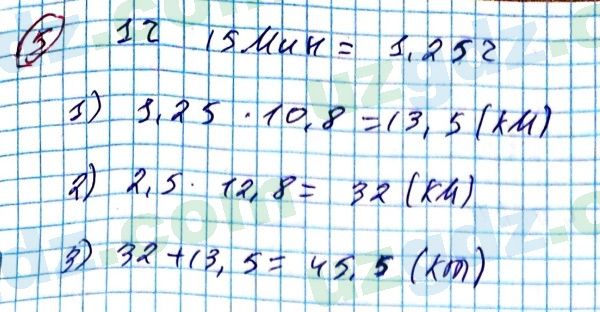 5 1ч 15 мин = 1,25ч
1) 1,25 · 10,8 = 13,5 (км)
2) 2,5 · 12,8 = 32 (км)
3) 32 + 13,5 = 45,5 (кт)